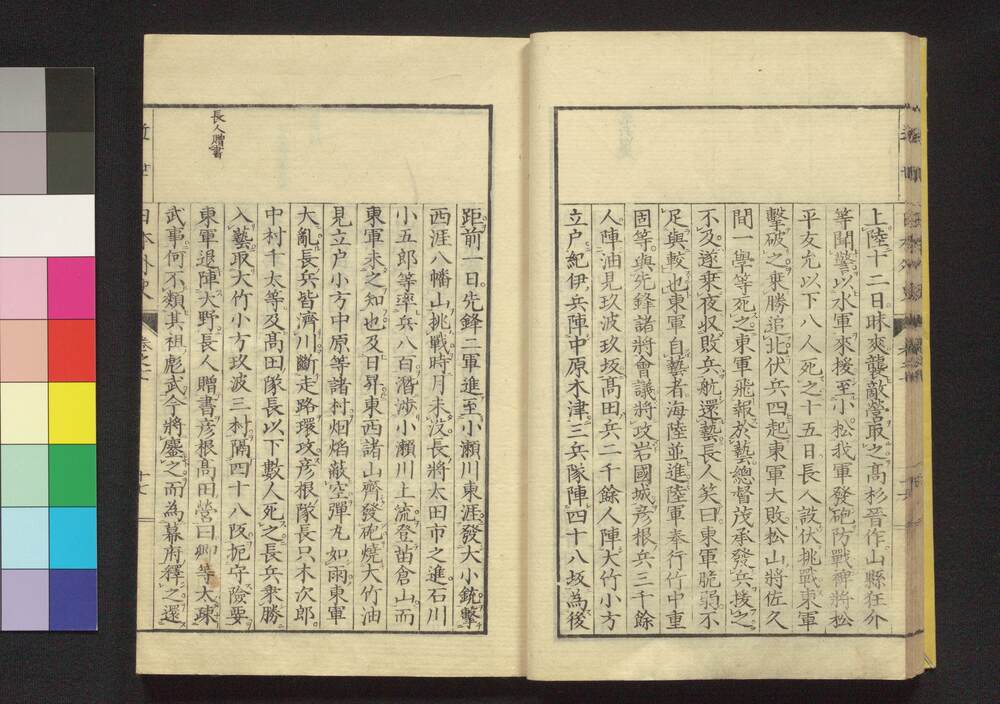 上陸十二日昧爽襲敵營取之高杉晋作山縣狂介
等聞警以水軍來援至小松我軍發砲防戰裨將松
平友允以下八人死之十五日長人設伏挑戰東軍
擊破之乗勝追北伏兵四起東軍大敗松山將佐久
間一學等死之東軍飛報於藝總督茂承發兵援之
不及遂乗夜収敗兵航還藝長人笑曰東軍脆弱不
足與較也東軍自藝者海陸並進陸軍奉行竹中重
固等與先鋒諸將會議將攻岩國城彦根兵三千餘
人陣油見玖波玖坂高田兵二千餘人陣大竹小方
立戸紀伊兵陣中原木津三兵隊陣四十八坂為後
長人贈書
距前一日先鋒二軍進至小瀬川東涯發大小銃擊
西涯八幡山挑戰時月未没長將太田市之進石川
小五郎等率兵八百潜渉小瀬川上流登苗倉山而
東軍未之知也及日昇東西諸山齊發砲燒大竹油
見立戸小方中原等諸村烟焰蔽空彈丸如雨東軍
大亂長兵皆濟川斷走路環攻彦根隊長只木次郎
中村千太等及髙田隊長以下數人死之長兵乗勝
入藝取大竹小方玖波三村隔四十八阪扼守險要
東軍退陣大野長人贈書彦根髙田營曰卿等太疎
武事何不類其祖彪武今將鏖之而為幕府釋之還